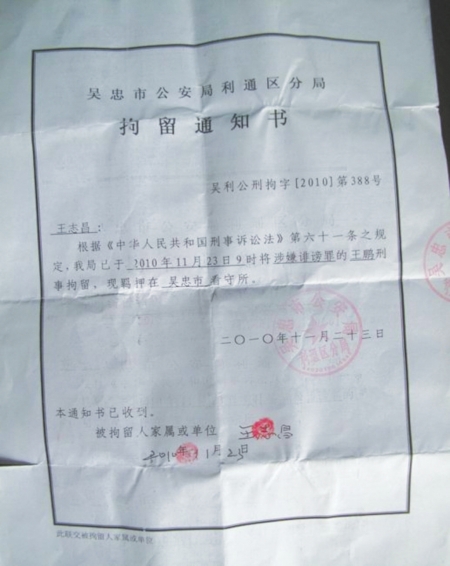 吴忠市公安局利通区分局
拘留通知书
吴利公刑拘字[2010]第388号
王志昌:
根据《中华人民共和国刑事诉讼法》第六十一条之规
定,我局已于 2010年11月23日9时将涉嫌诽谤罪的王鹏刑
事拘留,现羁押在 吴忠市 看守所。
二〇一〇年十一月二十三日
本通知书已收到。
被拘留人家属或单位 王志昌
2010年11月23日
此联交被拘留人家属或单位